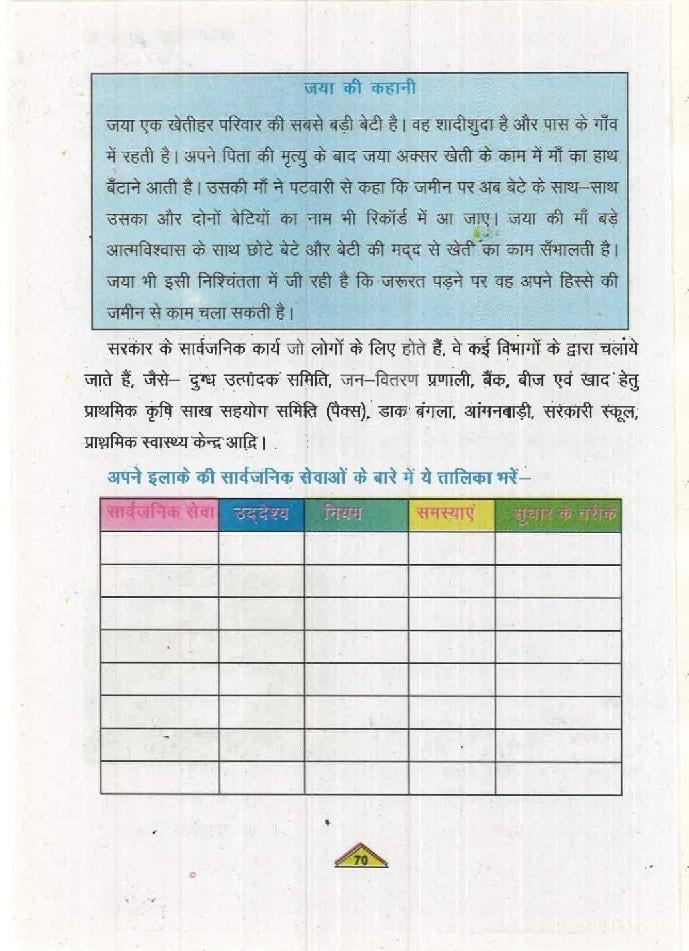 जया की कहानी
जया एक खेतीहर परिवार की सबसे बड़ी बेटी है। वह शादीशुदा है और पास के गाँव
में रहती है। अपने पिता की मृत्यु के बाद जया अक्सर खेती के काम में माँ का हाथ
बँटाने आती है। उसकी माँ ने पटवारी से कहा कि जमीन पर अब बेटे के साथ–साथ
उसका और दोनों बेटियों का नाम भी रिकॉर्ड में आ जाए। जया की माँ बड़े
आत्मविश्वास के साथ छोटे बेटे और बेटी की मद्द से खेती का काम सँभालती है।
जया भी इसी निश्चिंतता में जी रही है कि जरूरत पड़ने पर वह अपने हिस्से की
जमीन से काम चला सकती है।
सरकार के सार्वजनिक कार्य जो लोगों के लिए होते हैं, वे कई विभागों के द्वारा चलाये
जाते हैं, जैसे– दुग्ध उत्पादक समिति, जन–वितरण प्रणाली, बैंक, बीज एवं खाद हेतु
प्राथमिक कृषि साख सहयोग समिति (पैक्स), डाक बंगला, आंगनबाड़ी, सरकारी स्कूल,
प्राथमिक स्वास्थ्य केन्द्र आदि।
अपने इलाके की सार्वजनिक सेवाओं के बारे में ये तालिका भरें–
सार्वजनिक सेवा उद्देश्य नियम समस्याएं सुधार के तरीके
70